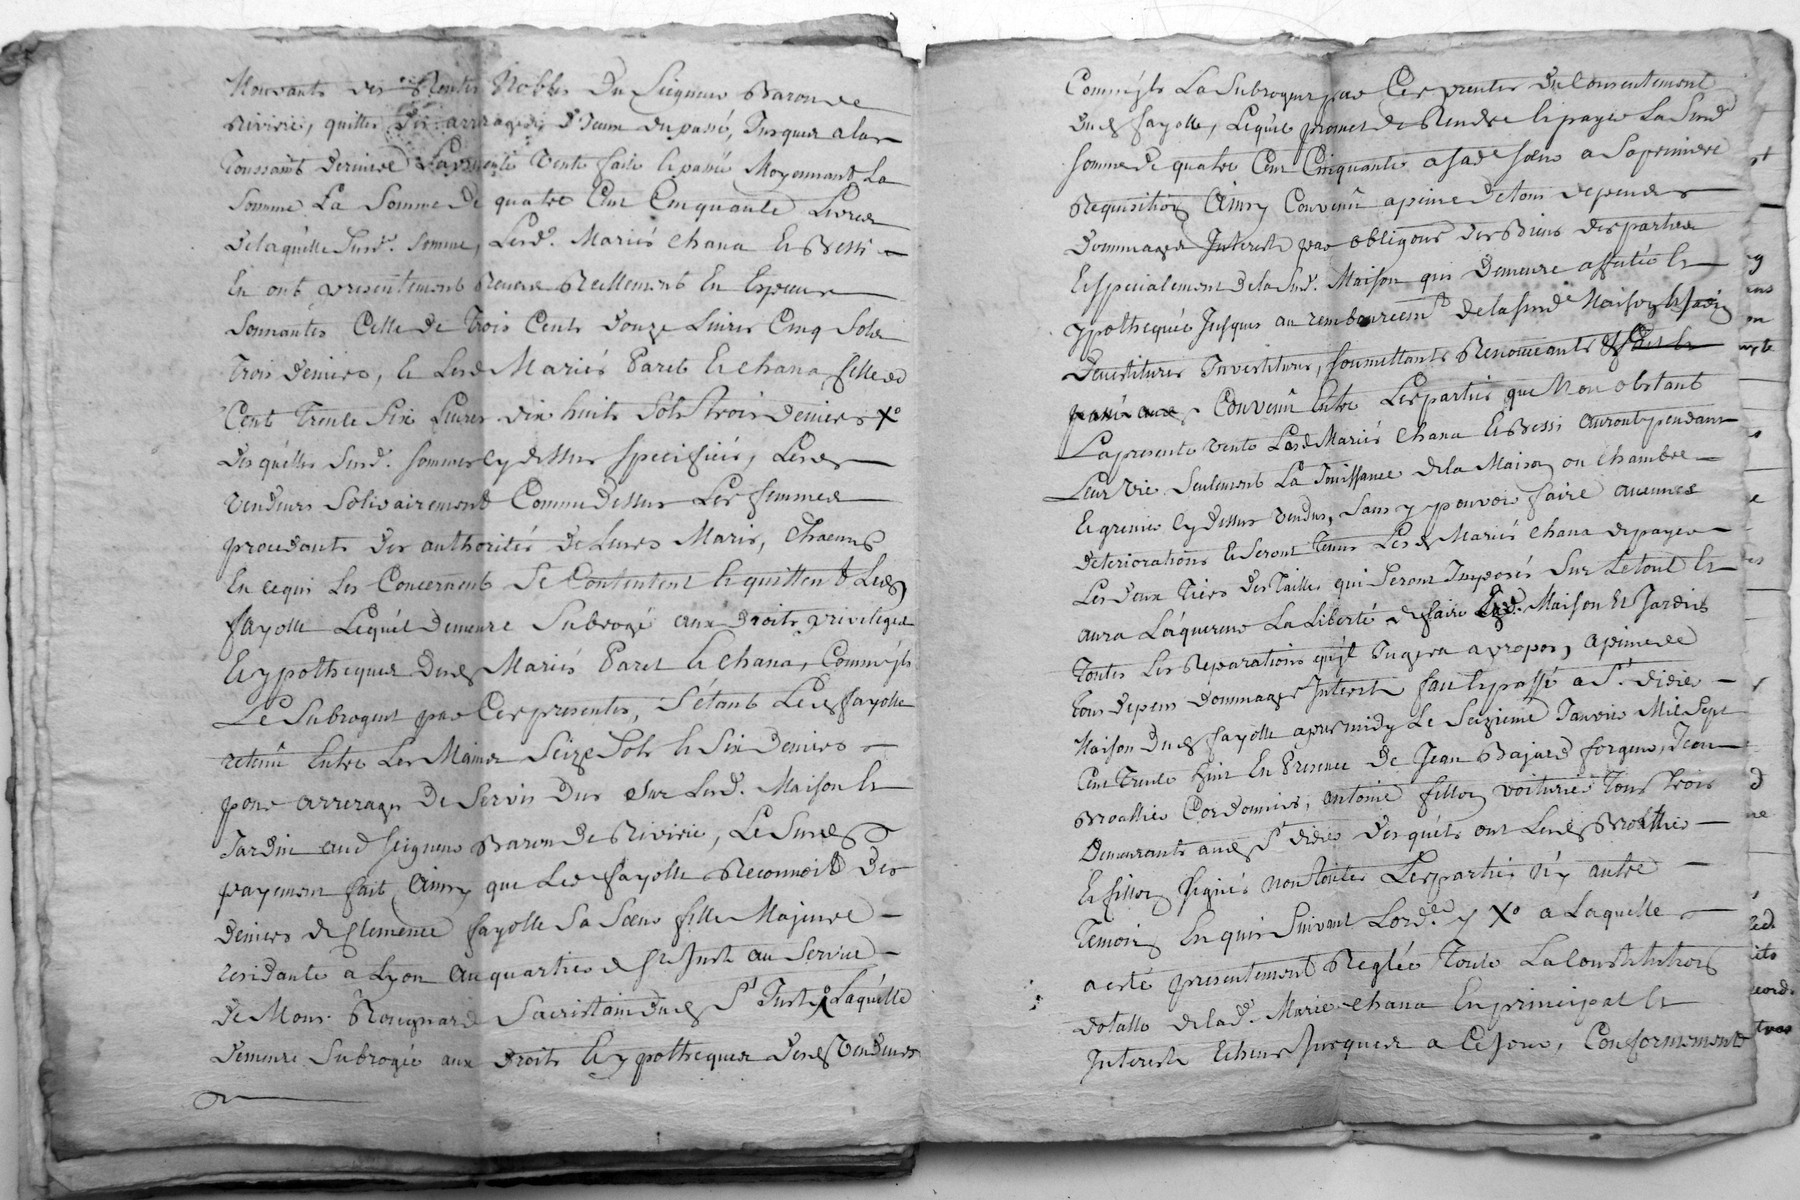 Mouvants des Rentes Nobles Du Seigneur Baron de
Riviric, quittes Des arrerages D'iceux du passé, Jusques a la
Toussaint derniere La presente Vente faite et passée Moyennant La
Somme La Somme De quatre Cent Cinquante Livres
De laquelle Susd. Somme, Lesd. Mariés Chana Et Bessi
En ont presentement Receu Reellement En Especes
Sonnantes Celle de Trois Cents Douze Livres Cinq Sols
Trois deniers, et Lesd Mariés Paret Et Chana, Celle de
Cent Trente Six Livres dix huits Sols trois deniers Xo
Desquelles Susd. Sommes Cy dessus Specifiées, Lesd
Vendeurs Solidairement Comme dessus Les femmes
procedants Des authorités De Leurs Maris, Chacuns
En ce qui Les Concernent Se Contentent et quittent Led
fayolle Lequel Demeure Subrogé aux Droits privileges
Et ypotheques Desd Mariés Paret Et Chana, Comm'ils
Le Subrogent par Ces presentes, S'etant Led fayolle
retenû Entre Les Mains Seize Sols et Six Deniers
pour arrerages De Servis Dus Sur Lesd. Maison Et
Jardin aud Seigneur Baron De Riviric, Le Susd
payement fait Ainsy que Led fayolle Reconnoit Des
deniers de Clemence fayolle Sa Soeur fille Majeure
residante a Lyon au quartier de St Just au Service
De Mons. Rougnard Sacristain dud St Just, Laquelle
Demeure Subrogée aux Droits Et ypotheques Desd Vendeurs
Comm'ils La Subrogent par Ces presentes du Consentement
Dud fayolle, Lequel promet de Rendre Et payer La Susd
Somme de quatre Cent Cinquante a Sad. Soeur a Sa premiere
Requisition Ainsy Convenû a peine de tous depends
Dommages Interests par obligons Des Biens des parties
Et Specialement de la Susd. Maison qui Demeure affectée Et
ypothequée Jusques au remboursemt. De la Susd. Maison
Devestitures Investitures, Soumettants Renonceants
Convenû Entre Les parties que Non obstant
La presente vente Lesd Mariés Chana Et Bessi auront pendant
Leur Vie Seulement La Jouissance de la Maison ou Chambre
Et grenier Cy dessus vendus, Sans y pouvoir faire aucunes
deteriorations Et Seront Tenus Lesd Mariés Chana de payer
Les Deux Tiers Des Tailles qui Seront Imposés Sur Le tout Et
aura L'acquereur La Liberté de faire Maison Et Jardin
Toutes Les Reparations qu'il Jugera a propos, a peine de
Tous depens Dommages Interest fait Et passé a St. Didier
Maison dud fayolle apres midy Le Seizieme Janvier Mil Sept
Cent Trente huit En Presence De Jean Bajard forgeur, Jean
Broallier Cordonnier, antoine fillon voiturier Tous trois
Demeurants aud St didier Desquels ont Lesd Broallier
Et fillon Signés non toutes Les parties N'y autre
Temoin Enquis Suivant Lord. y Xo a Laquelle
a esté presentement Reglée Toute La Constitution
dotalle de lad. Marie Chana En principal Et
Interests Echus Jusques a Ce Jour, Conformement